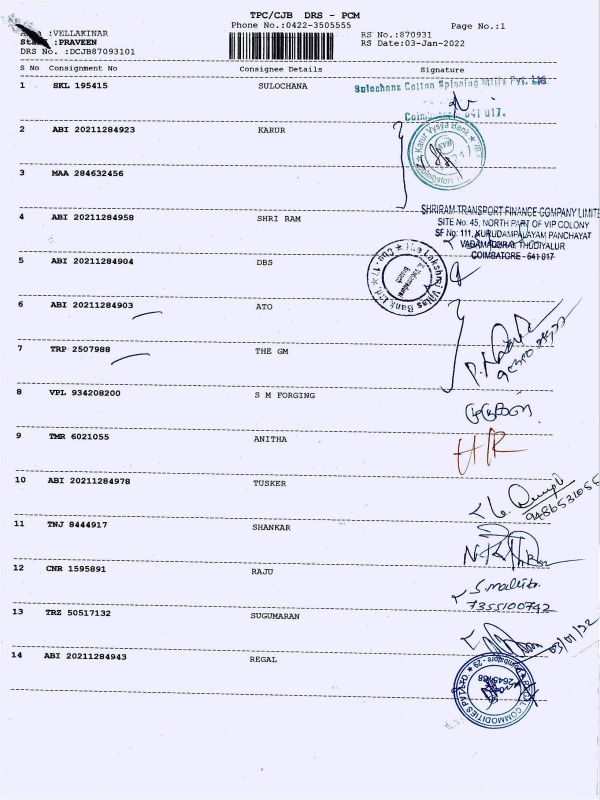 TPC/CJB DRS - PCM
Phone No.:0422-3505555
Page No.:1
:VELLAKINAR
:PRAVEEN
DRS No. :DCJB87093101
RS No.:870931
RS Date:03-Jan-2022
S No Consignment No Consignee Details Signature
1 SKL 195415 SULOCHANA
Sulochana Cotton Spinning Mills Pvt. Ltd
641 017.
2 ABI 20211284923 KARUR
Karur Vysya Bank
3 MAA 284632456
4 ABI 20211284958 SHRI RAM
SHRIRAM TRANSPORT FINANCE COMPANY LIMITE
SITE No. 45, NORTH PART OF VIP COLONY
SF No: 111, KURUDAMPALAYAM PANCHAYAT
VADAMADURAI, THUDIYALUR
COIMBATORE - 641 017
5 ABI 20211284904 DBS
The Lakshmi Vilas Bank Ltd.
6 ABI 20211284903 ATO
7 TRP 2507988 THE GM
8 VPL 934208200 S M FORGING
9 TMR 6021055 ANITHA
HR
10 ABI 20211284978 TUSKER
11 TNJ 8444917 SHANKAR
12 CNR 1595891 RAJU
7355100742
13 TRZ 50517132 SUGUMARAN
03/01/22
14 ABI 20211284943 REGAL
COMMODITIES